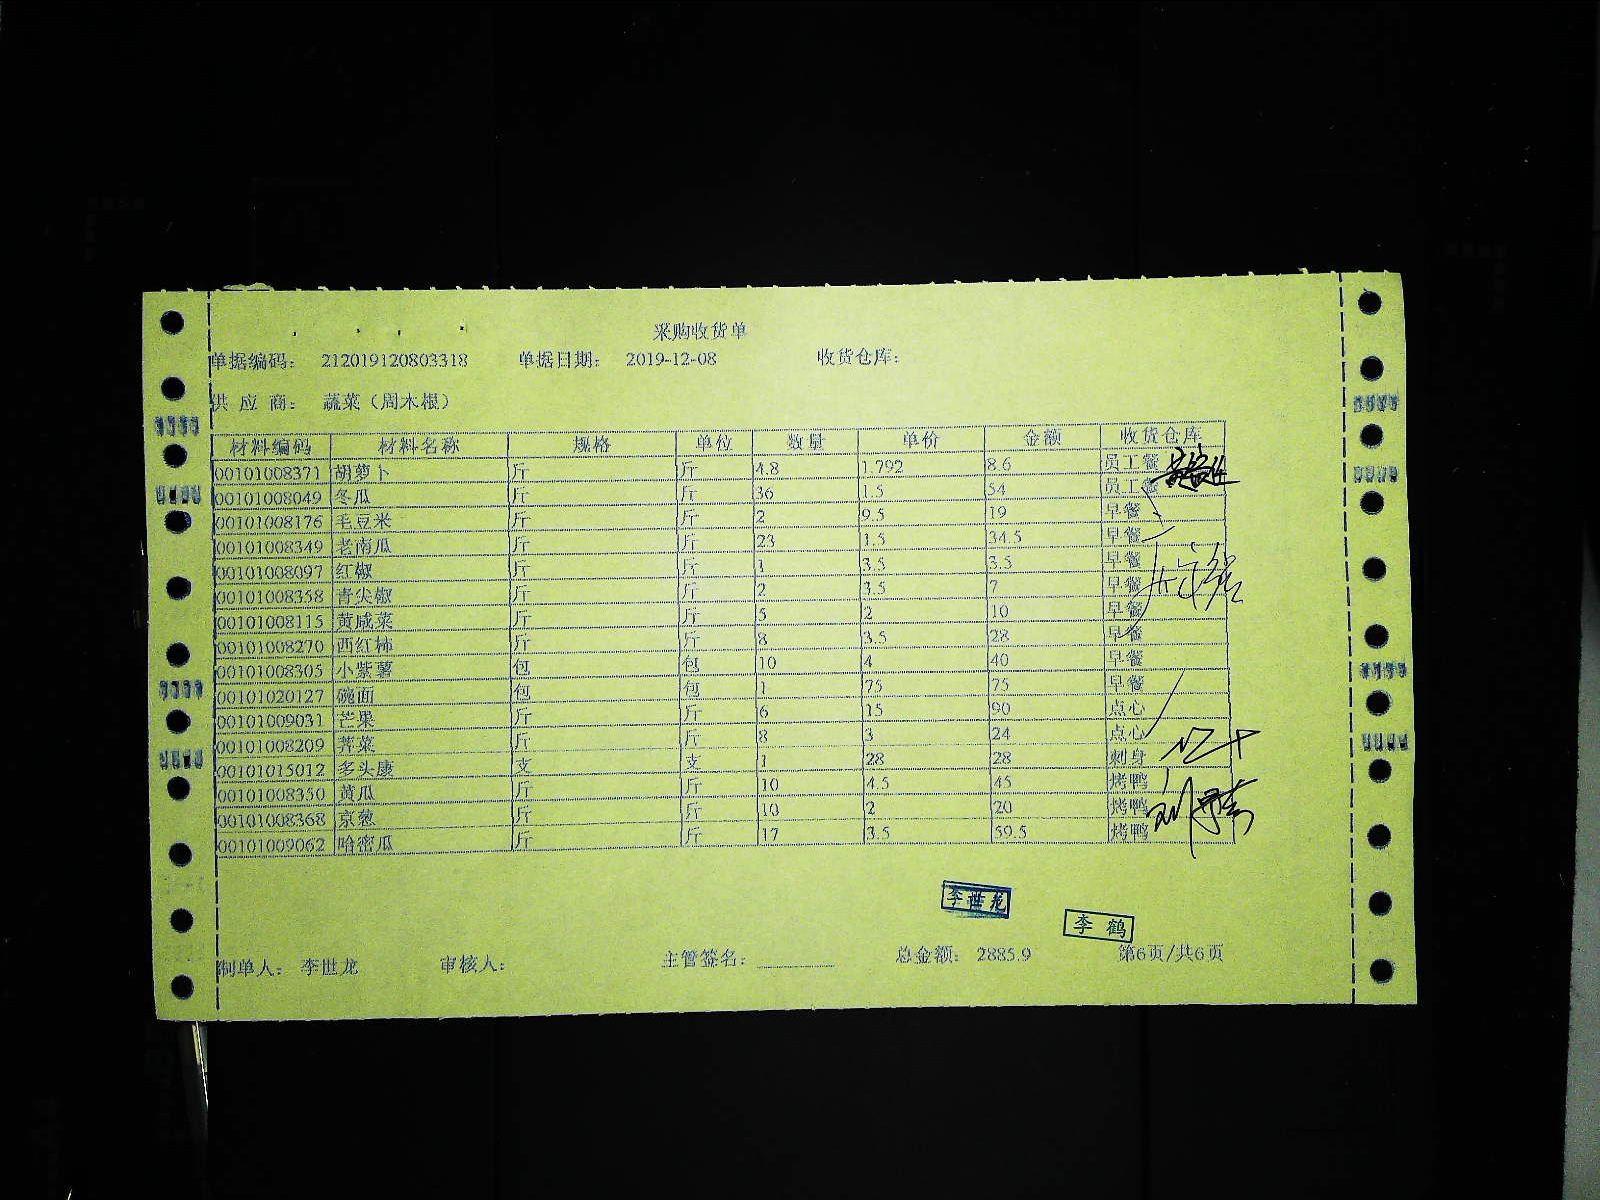 采购收货单
单据编码： 212019120803318 单据日期： 2019-12-08 收货仓库：
供 应 商： 蔬菜（周木根）
材料编码 材料名称 规格 单位 数量 单价 金额 收货仓库
00101008371 胡萝卜 斤 斤 4.8 1.792 8.6 员工餐
00101008049 冬瓜 斤 斤 36 1.5 54 员工餐
00101008176 毛豆米 斤 斤 2 9.5 19 早餐
00101008349 老南瓜 斤 斤 23 1.5 34.5 早餐
00101008097 红椒 斤 斤 1 3.5 3.5 早餐
00101008358 青尖椒 斤 斤 2 3.5 7 早餐
00101008115 黄咸菜 斤 斤 5 2 10 早餐
00101008270 西红柿 斤 斤 8 3.5 28 早餐
00101008305 小紫薯 包 包 10 4 40 早餐
00101020127 碗面 包 包 1 75 75 早餐
00101009031 芒果 斤 斤 6 15 90 点心
00101008209 荠菜 斤 斤 8 3 24 点心
00101015012 多头康 支 支 1 28 28 刺身
00101008350 黄瓜 斤 斤 10 4.5 45 烤鸭
00101008368 京葱 斤 斤 10 2 20 烤鸭
00101009062 哈密瓜 斤 斤 17 3.5 59.5 烤鸭
李世龙
李 鹤
制单人： 李世龙 审核人： 主管签名： 总金额： 2885.9 第6页/共6页